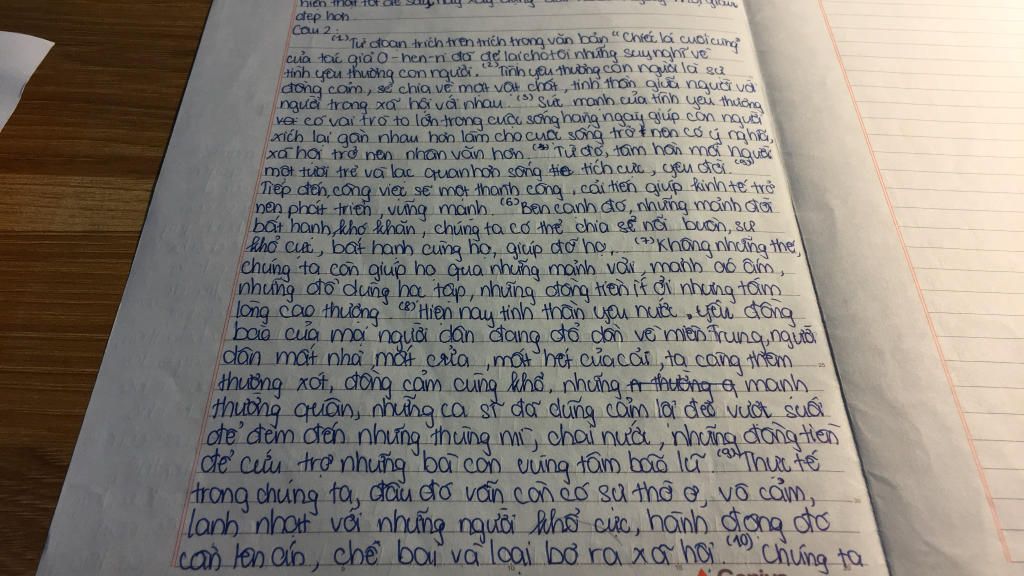 đẹp hơn
Câu 2:
(1) Từ đoạn trích trên trích trong văn bản "Chiếc lá cuối cùng"
của tác giả O-hen-ri đã để lại cho tôi những suy nghĩ về
tình yêu thương con người. (2) Tình yêu thương con người là sự
đồng cảm, sẻ chia về mặt vật chất, tinh thần giữa người với
người trong xã hội với nhau. (3) Sức mạnh của tình yêu thương
có vai trò to lớn trong cuộc sống hàng ngày giúp con người
xích lại gần nhau hơn làm cho cuộc sống trở nên có ý nghĩa,
xã hội trở nên nhân văn hơn (4) Từ đó, tâm hồn mỗi người
một tươi trẻ và lạc quan hơn sống tích cực, yêu đời (5)
Tiếp đến, công việc sẽ một thành công, cải tiến giúp kinh tế trở
nên phát triển, vững mạnh (6) Bên cạnh đó, những mảnh đời
bất hạnh, khó khăn, chúng ta có thể chia sẻ nỗi buồn, sự
khổ cực, bất hạnh cùng họ, giúp đỡ họ, (7) Không những thế,
chúng ta còn giúp họ qua những mảnh vải, manh áo ấm,
những đồ dùng học tập, những đồng tiền ít ỏi nhưng tấm
lòng cao thượng (8) Hiện nay tinh thần yêu nước, yêu đồng
bào của mọi người dân đang đổ dồn về miền Trung, người
dân mất nhà mất cửa, mất hết của cải, ta càng thêm
thương xót, đồng cảm cùng khổ, những mạnh
thường quân, những ca sĩ đã dũng cảm lội đèo vượt suối
để đem đến những thùng mì, chai nước, những đồng tiền
để cứu trợ những bà con vùng tâm bão lũ (9) Thực tế
trong chúng ta, đâu đó vẫn còn có sự thờ ơ, vô cảm,
lạnh nhạt với những người khổ cực, hành động đó
cần lên án, chê bai và loại bỏ ra xã hội (10) Chúng ta